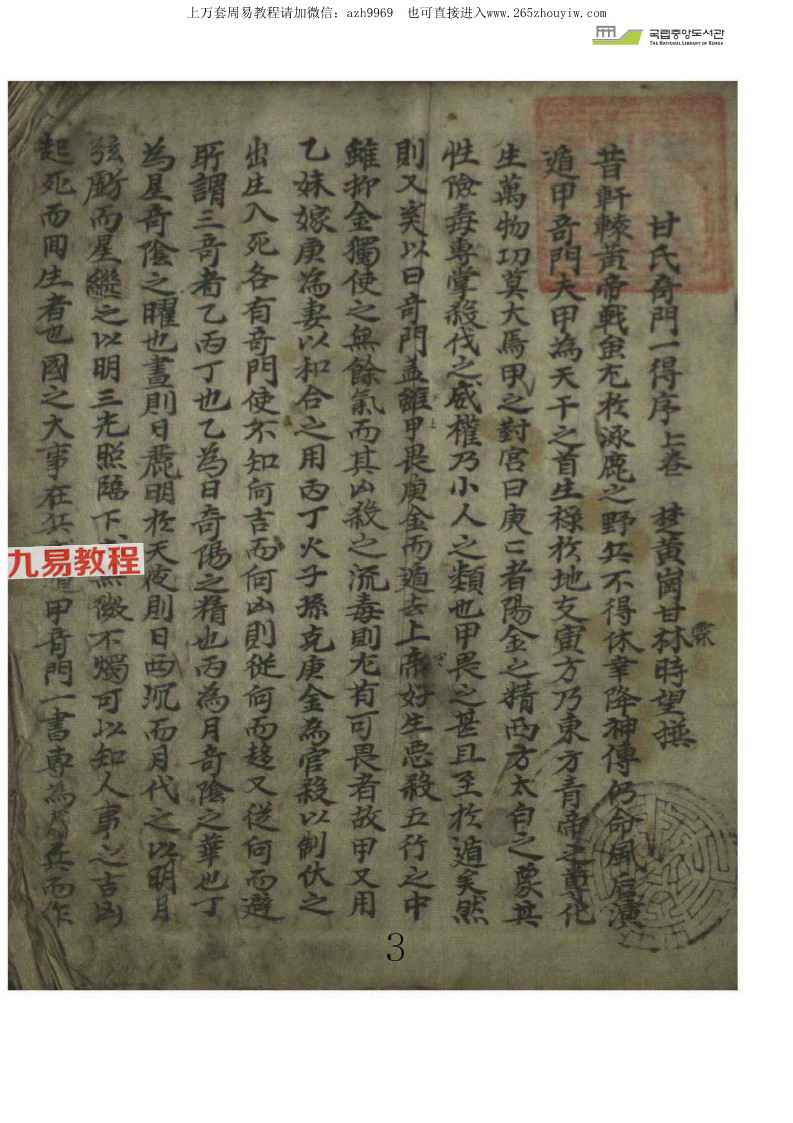 上万套周易教程请加微信：azh9969　也可直接进入www.265zhouyiw.com
국립중앙도서관
THE NATIONAL LIBRARY OF KOREA
甘氏奇門一得序上卷　楚黃崗甘霖時望撰
昔軒轅黃帝戰蚩尤於涿鹿之野兵不得休幸降神傳仍命風后演
遁甲奇門夫甲為天干之首生祿於地支寅方乃東方青帝之尊化
生萬物功莫大焉甲之對宮曰庚〻者陽金之精西方太白之象其
性險毒專掌殺伐之威權乃小人之類也甲畏之甚且至於遁矣然
則又奚以曰奇門盖雖甲畏庚金而遁去上帝好生惡殺五行之中
雖抑金獨使之無餘氣而其凶殺之流毒則尤有可畏者故甲又用
乙妹嫁庚為妻以和合之用丙丁火子孫克庚金為官殺以制伏之
出生入死各有奇門使不知何吉而何凶則從何而趍又從何而避
所謂三奇者乙丙丁也乙為日奇陽之精也丙為月奇陰之華也丁
為星奇陰之曜也晝則日麗明於天夜則日西沉而月代之以明月
弦斷而星繼之以明三光照臨下微不燭可以知人事之吉凶
起死而回生者也國之大事在甲奇門一書專為兵而作
九易教程
3